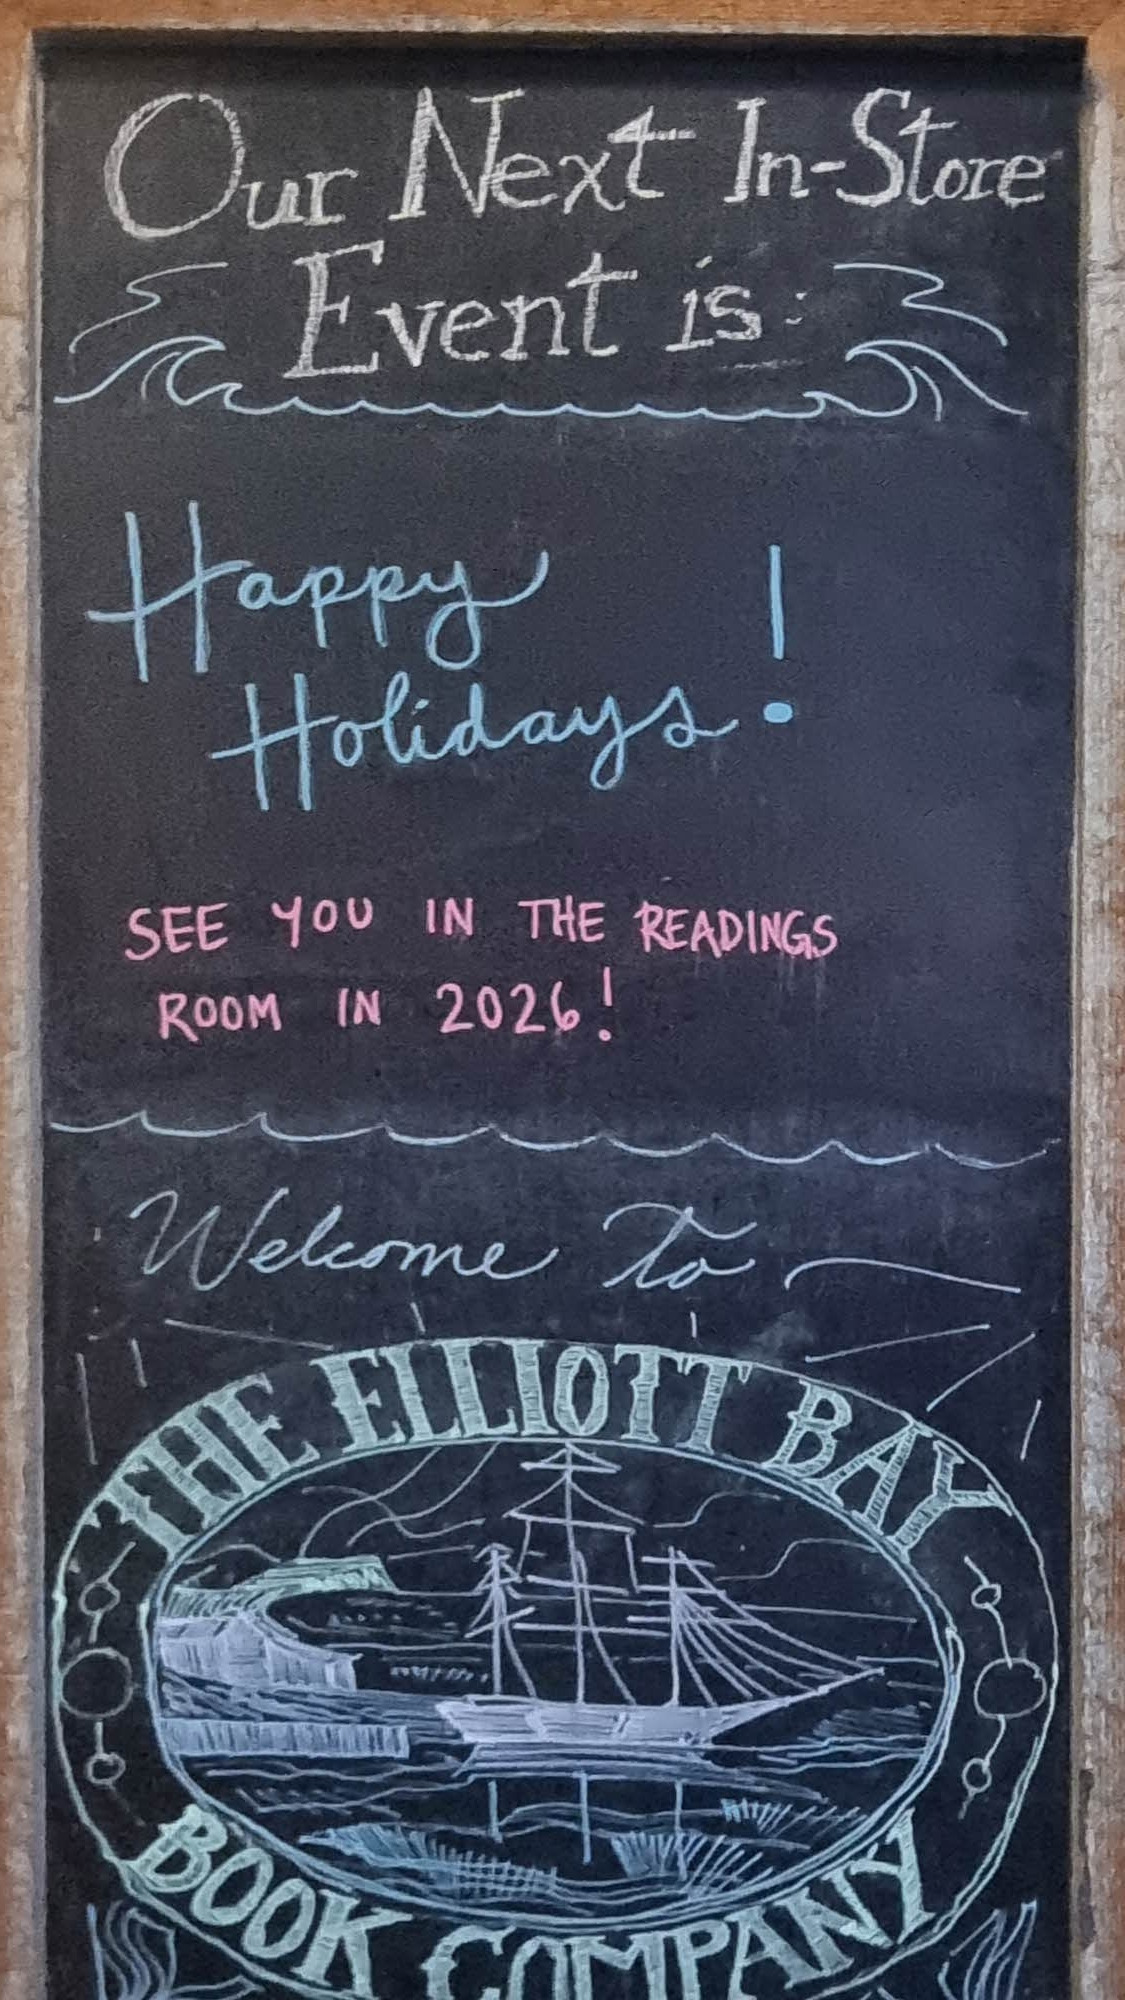 Our Next In-Store
Event is:
Happy
Holidays!
SEE YOU IN THE READINGS
ROOM IN 2026!
Welcome to
THE ELLIOTT BAY
BOOK COMPANY